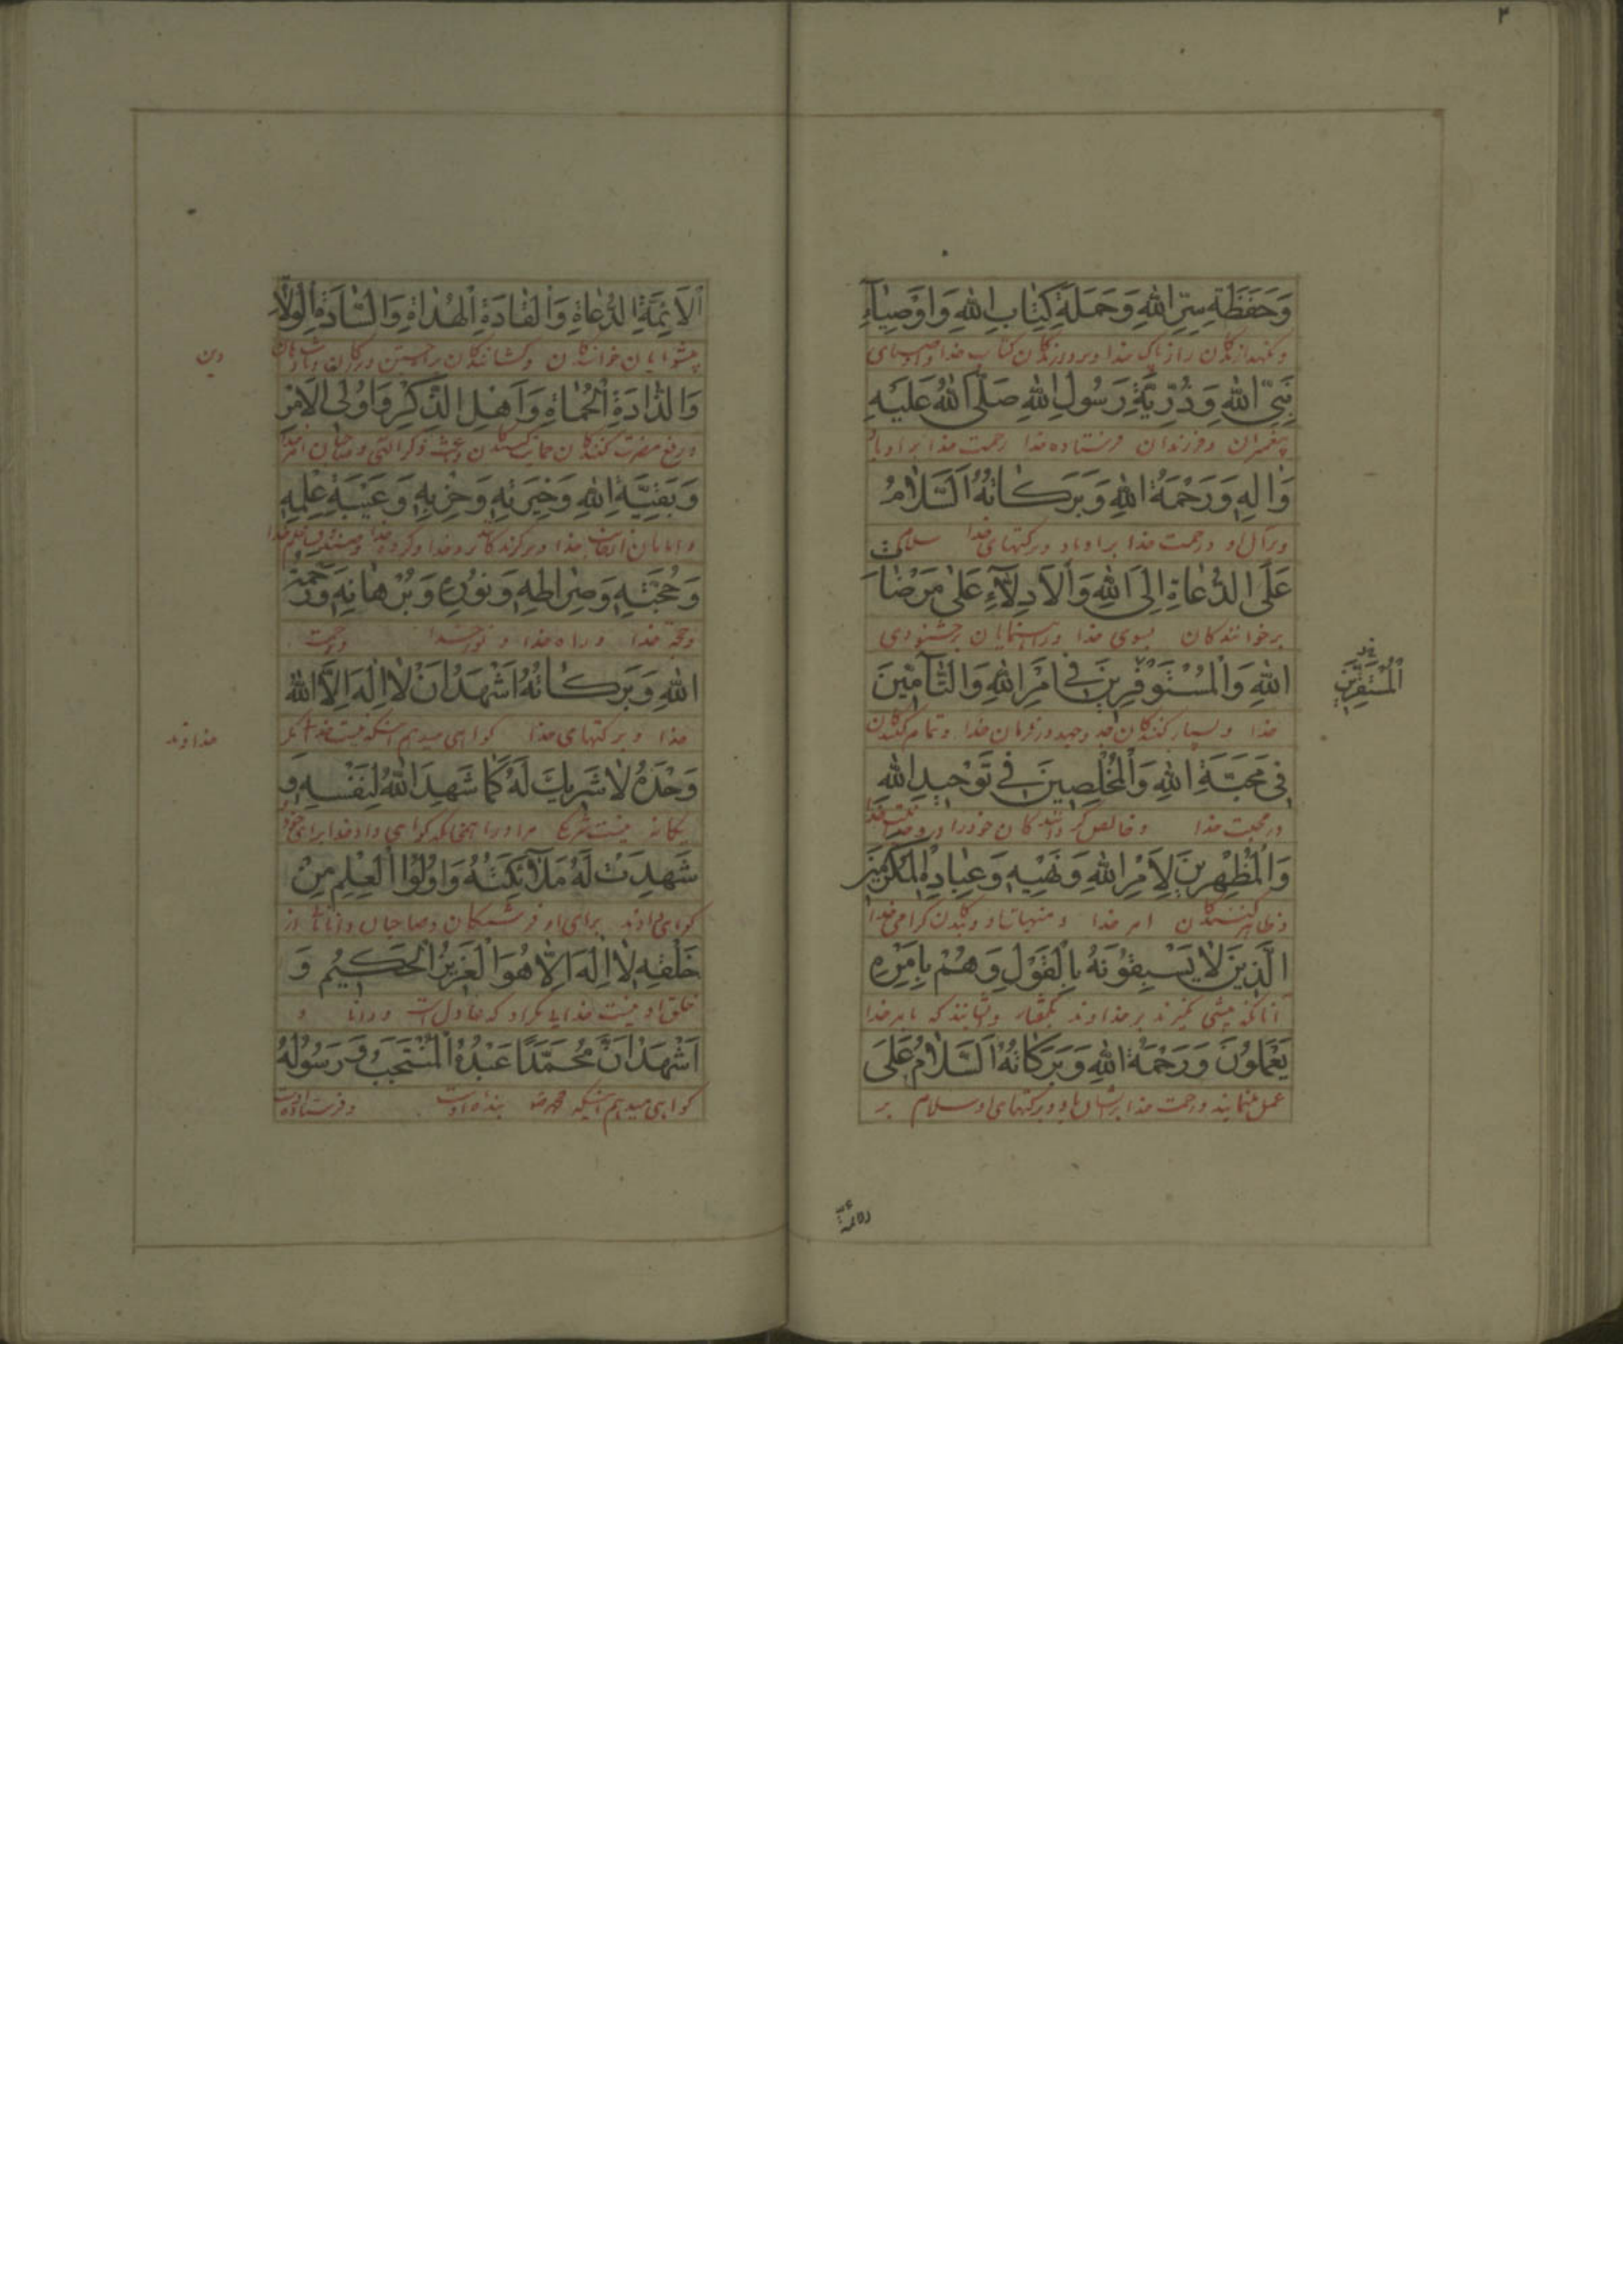 ۲
وَحَفَظَةِ سِرِّ اللهِ وَحَمَلَةِ كِتَابِ اللهِ وَاَوْصِيَآءِ
ونگهدارندگان راز پاک خدا و کتاب خدا
نَبِيِّ اللهِ وَذُرِّيَّةِ رَسُولِ اللهِ صَلَّى اللهُ عَلَيْهِ
پیغمبران وفرزندان فرستاده خدا رحمت خدا بر او باد
وَاٰلِهِ وَرَحْمَةُ اللهِ وَبَرَكَاتُهُ اَلسَّلَامُ
وبرآل او ورحمت خدا بر او باد وبرکتهای خدا سلام
عَلَى الدُّعَاةِ اِلَى اللهِ وَالْاَدِلَّآءِ عَلٰى مَرْضَاتِ
برخوانندگان بسوی خدا وراهنمایان برخشنودی
اللهِ وَالْمُسْتَوْفِرِينَ فِي اَمْرِ اللهِ وَالتَّآمِّينَ
خدا وبسیار کنندگان جد وجهد در فرمان خدا وتمام کنندگان
الْمُسْتَقِرِّينَ
فِي مَحَبَّةِ اللهِ وَالْمُخْلِصِينَ فِي تَوْحِيدِ اللهِ
در محبت خدا وخالص کنندگان خود را در
وَالْمُظْهِرِينَ لِاَمْرِ اللهِ وَنَهْيِهِ وَعِبَادِهِ الْمُكْرَمِينَ
وظاهرکنندگان امر خدا ومنهیات او وبندگان گرامی خدا
الَّذِينَ لَا يَسْبِقُونَهُ بِالْقَوْلِ وَهُمْ بِاَمْرِهِ
آنانکه پیشی نگیرند بر خداوند بگفتار وایشانند که بامر خدا
يَعْمَلُونَ وَرَحْمَةُ اللهِ وَبَرَكَاتُهُ اَلسَّلَامُ عَلَى
عمل مینمایند ورحمت خدا بر ایشان باد وبرکتهای او سلام بر
الْاَئِمَّةِ الدُّعَاةِ وَالْقَادَةِ الْهُدَاةِ وَالسَّادَةِ الْوُلَاةِ
پیشوایان خوانندگان وکشانندگان
دین
وَالذَّادَةِ الْحُمَاةِ وَاَهْلِ الذِّكْرِ وَاُولِى الْاَمْرِ
ودفع مضرت کنندگان حمایت کنندگان
وَبَقِيَّةِ اللهِ وَخِيَرَتِهِ وَحِزْبِهِ وَعَيْبَةِ عِلْمِهِ
خدا وبرگزیدگان خدا وگروه خدا
وَحُجَّتِهِ وَصِرَاطِهِ وَنُورِهِ وَبُرْهَانِهِ وَرَحْمَةُ
وحجت خدا وراه خدا ونور خدا ورحمت
اللهِ وَبَرَكَاتُهُ اَشْهَدُ اَنْ لَا اِلٰهَ اِلَّا اللهُ
خدا وبرکتهای خدا گواهی میدهم اینکه نیست خدا مگر
خداوند
وَحْدَهُ لَا شَرِيكَ لَهُ كَمَا شَهِدَ اللهُ لِنَفْسِهِ وَ
یگانه نیست شریک مر او را همچنانکه گواهی داد خدا برای خود
شَهِدَتْ لَهُ مَلَآئِكَتُهُ وَاُولُوا الْعِلْمِ مِنْ
گواهی دادند برای او فرشتگان وصاحبان دانائی از
خَلْقِهِ لَا اِلٰهَ اِلَّا هُوَ الْعَزِيزُ الْحَكِيمُ وَ
خلق او نیست خدایی مگر او که عادل است ودانا و
اَشْهَدُ اَنَّ مُحَمَّدًا عَبْدُهُ الْمُنْتَجَبُ وَرَسُولُهُ
گواهی میدهم اینکه محمد بنده اوست وفرستاده اوست